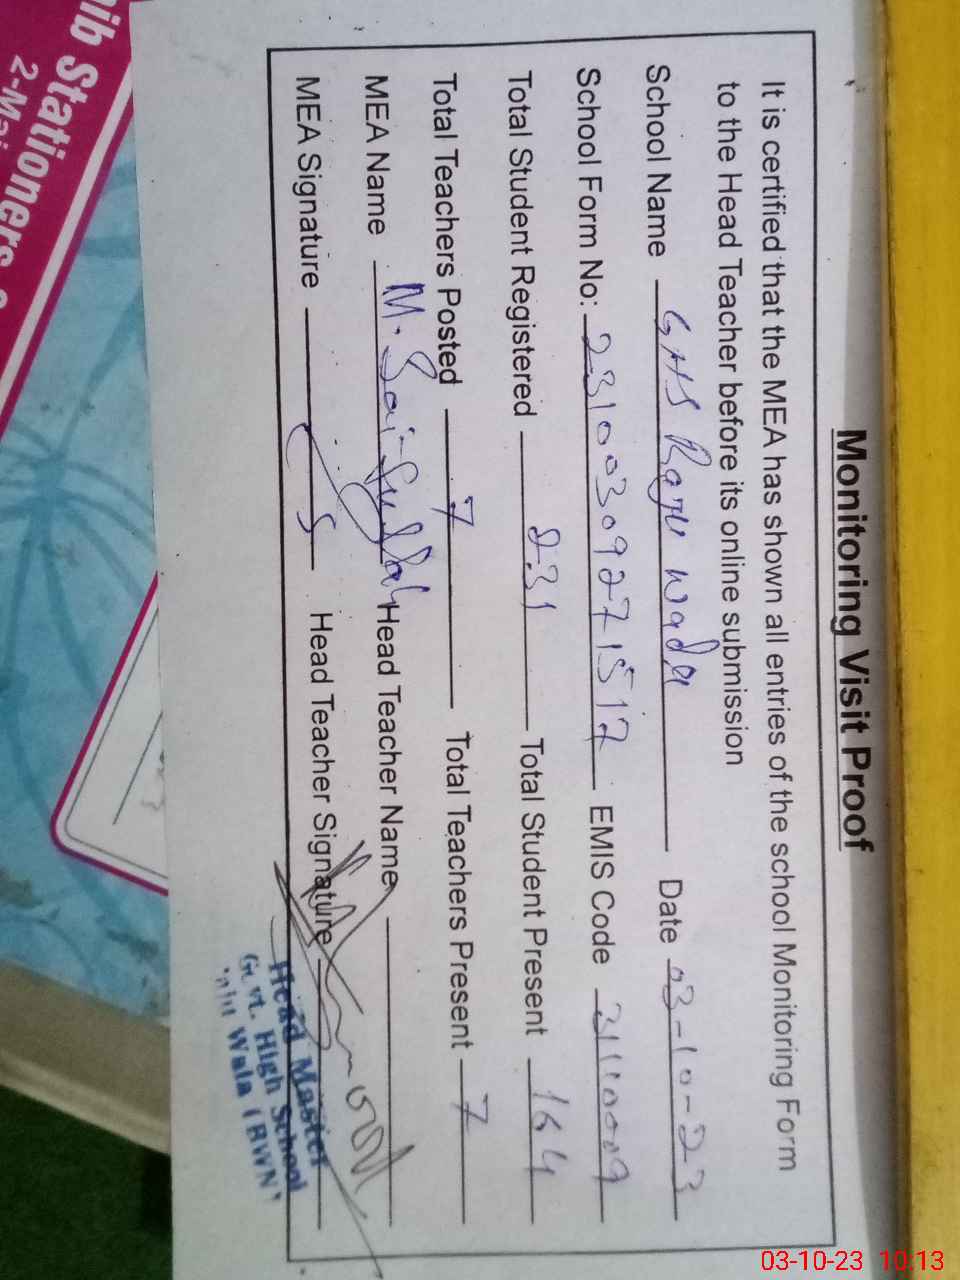 Monitoring Visit Proof
It is certified that the MEA has shown all entries of the school Monitoring Form
to the Head Teacher before its online submission
School Name GHS Raju Wada Date 03-10-23
School Form No: 23100309271512 EMIS Code 31110009
Total Student Registered 231 Total Student Present 164
Total Teachers Posted 7 Total Teachers Present 7
MEA Name M. Saifullah Head Teacher Name
MEA Signature Head Teacher Signature
Head Master
Govt. High School
Wala (BWN)
ib Stationers &
03-10-23 10:13